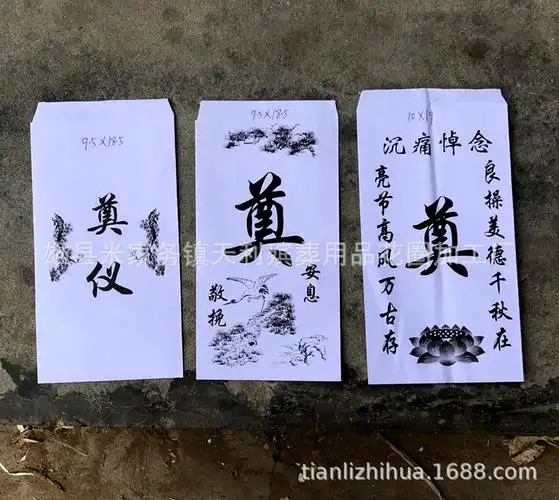 9.5×18.5
奠
仪
9.5×18.5
奠
安息
敬挽
10×19
沉痛悼念
良操美德千秋在
奠
亮节高风万古存
雄县米家务镇天利殡葬用品花圈加工厂
tianlizhihua.1688.com